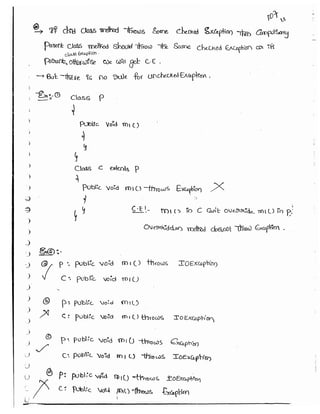 → If child class method throws Some checked Exception then Compulsory
parent class method should throw the Same checked Exception or its
class Exception
Parent, otherwise we will get C.E.
→ But there is no rule for unchecked Exception.
Ex:- ①
class P
{
public void m1()
{
}
}
class C extends P
{
public void m1() throws Exception ✗
{
}
}
C.E!:- m1() in C can't override m1() in P;
Overridden method doesnot throw Exception.
Ex②:-
① P: public void m1() throws IOException
✓ C: public void m1()
② P: public void m1()
✗ C: public void m1() throws IOException
③ P: public void m1() throws Exception
✓ C: public void m1() throws IOException
④ P: public void m1() throws IOException
✗ C: public void m1() throws Exception